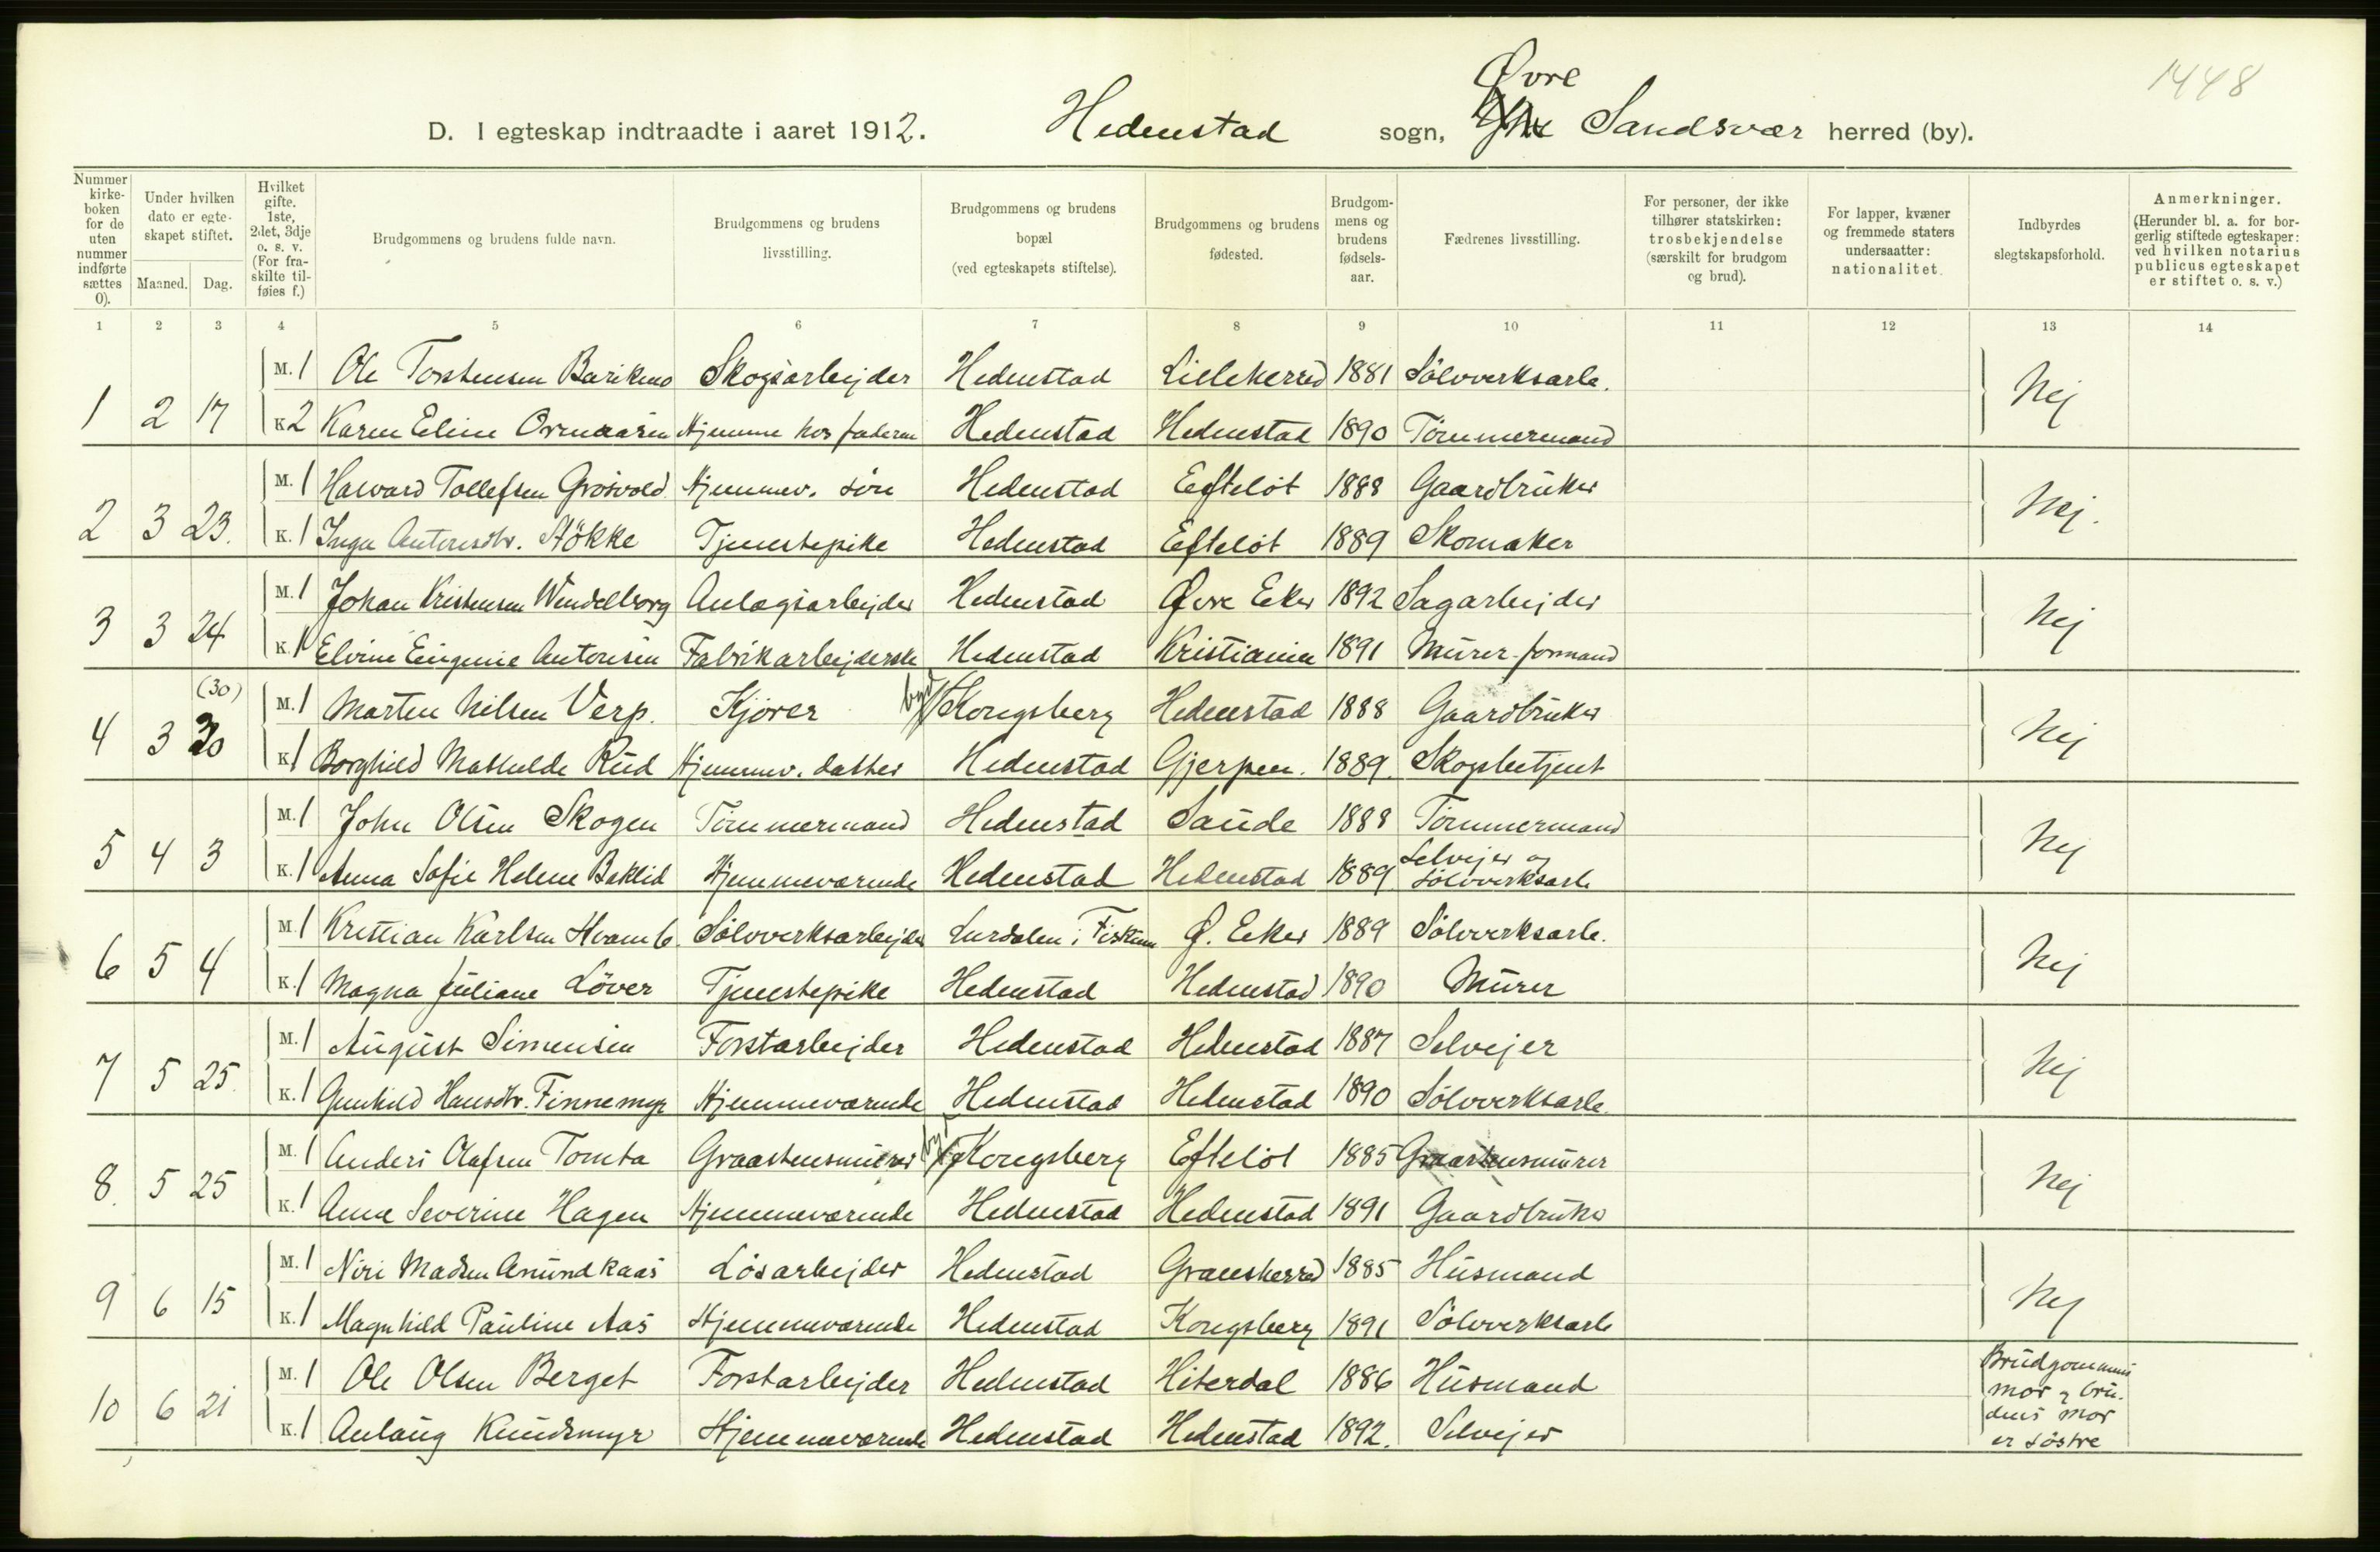 1448
Øvre
D. I egteskap indtraadte i aaret 1912. Hedenstad sogn, Sandsvær herred (by).
Nummer kirkeboken for de uten nummer indførte sættes 0).
Under hvilken dato er egteskapet stiftet.
Maaned. Dag.
Hvilket gifte. 1ste, 2det, 3dje o. s. v. (For fraskilte tilføies f.)
Brudgommens og brudens fulde navn.
Brudgommens og brudens livsstilling.
Brudgommens og brudens bopæl (ved egteskapets stiftelse).
Brudgommens og brudens fødested.
Brudgommens og brudens fødselsaar.
Fædrenes livsstilling.
For personer, der ikke tilhører statskirken: trosbekjendelse (særskilt for brudgom og brud).
For lapper, kvæner og fremmede staters undersaatter: nationalitet.
Indbyrdes slegtskapsforhold.
Anmerkninger. (Herunder bl. a. for borgerlig stiftede egteskaper: ved hvilken notarius publicus egteskapet er stiftet o. s. v.)
1 2 3 4 5 6 7 8 9 10 11 12 13 14
M. 1 Ole Torstensen Skogsarbejder Hedenstad Lilleherred 1881 Sølvverksarb.
1 2 17 K 2 Karen Eline Ormaasen Hjemme hos faderen Hedenstad Hedenstad 1890 Tømmermand Nej
M. 1 Halvard Tollefsen Grosvold Hjemmev. søn Hedenstad Efteløt 1888 Gaardbruker
2 3 23. K. 1 Inga Antonsdtr. Støkke Tjenestepike Hedenstad Efteløt 1889 Skomaker Nej.
M. 1 Johan Kristensen Wendelborg Anlægsarbejder Hedenstad Øvre Eker 1892 Sagarbejder
3 3 24 K. 1 Elvine Eugenie Antonsen Fabrikarbejderske Hedenstad Kristiania 1891 Murer-formand Nej
(30) M. 1 Marten Nilsen Verp. Kjører by Kongsberg Hedenstad 1888 Gaardbruker
4 3 30 K 1 Borghild Mathilde Rud Hjemmev. datter Hedenstad Gjerpen. 1889. Skogsbetjent Nej
M. 1 John Olsen Skogen Tømmermand Hedenstad Saude 1888 Tømmermand
5 4 3 K. 1 Anna Sofie Helene Baklid Hjemmeværende Hedenstad Hedenstad 1889 Selvejer og Sølvverksarb Nej
M. 1 Kristian Karlsen Hvamb Sølvverksarbejder i Fiskum Ø. Eker 1889 Sølvverksarb.
6 5 4 K. 1 Magna Juliane Løver Tjenestepike Hedenstad Hedenstad 1890 Murer Nej
M. 1 August Simensen Forstarbejder Hedenstad Hedenstad 1887 Selvejer
7 5 25. K. 1 Gunhild Hansdtr. Finnemyr Hjemmeværende Hedenstad Hedenstad 1890 Sølvverksarb. Nej
M. 1 Anders Olafsen Tomta Graastensmurer by Kongsberg Efteløt 1885 Graastensmurer
8. 5 25 K. 1 Anna Severine Hagen Hjemmeværende Hedenstad Hedenstad 1891 Gaardbruker Nej
M. 1 Niri Madsen Anundkaas Løsarbejder Hedenstad Gransherred 1885 Husmand
9 6 15 K. 1 Magnhild Pauline Aas Hjemmeværende Hedenstad Kongsberg 1891 Sølvverksarb Nej
M. 1 Ole Olsen Berget Forstarbejder Hedenstad Hiterdal 1886 Husmand
10 6 21 K. 1 Anlaug Knudsmyr Hjemmeværende Hedenstad Hedenstad 1892. Selvejer
Brudgommens
mor og bru-
dens mor
er søstre